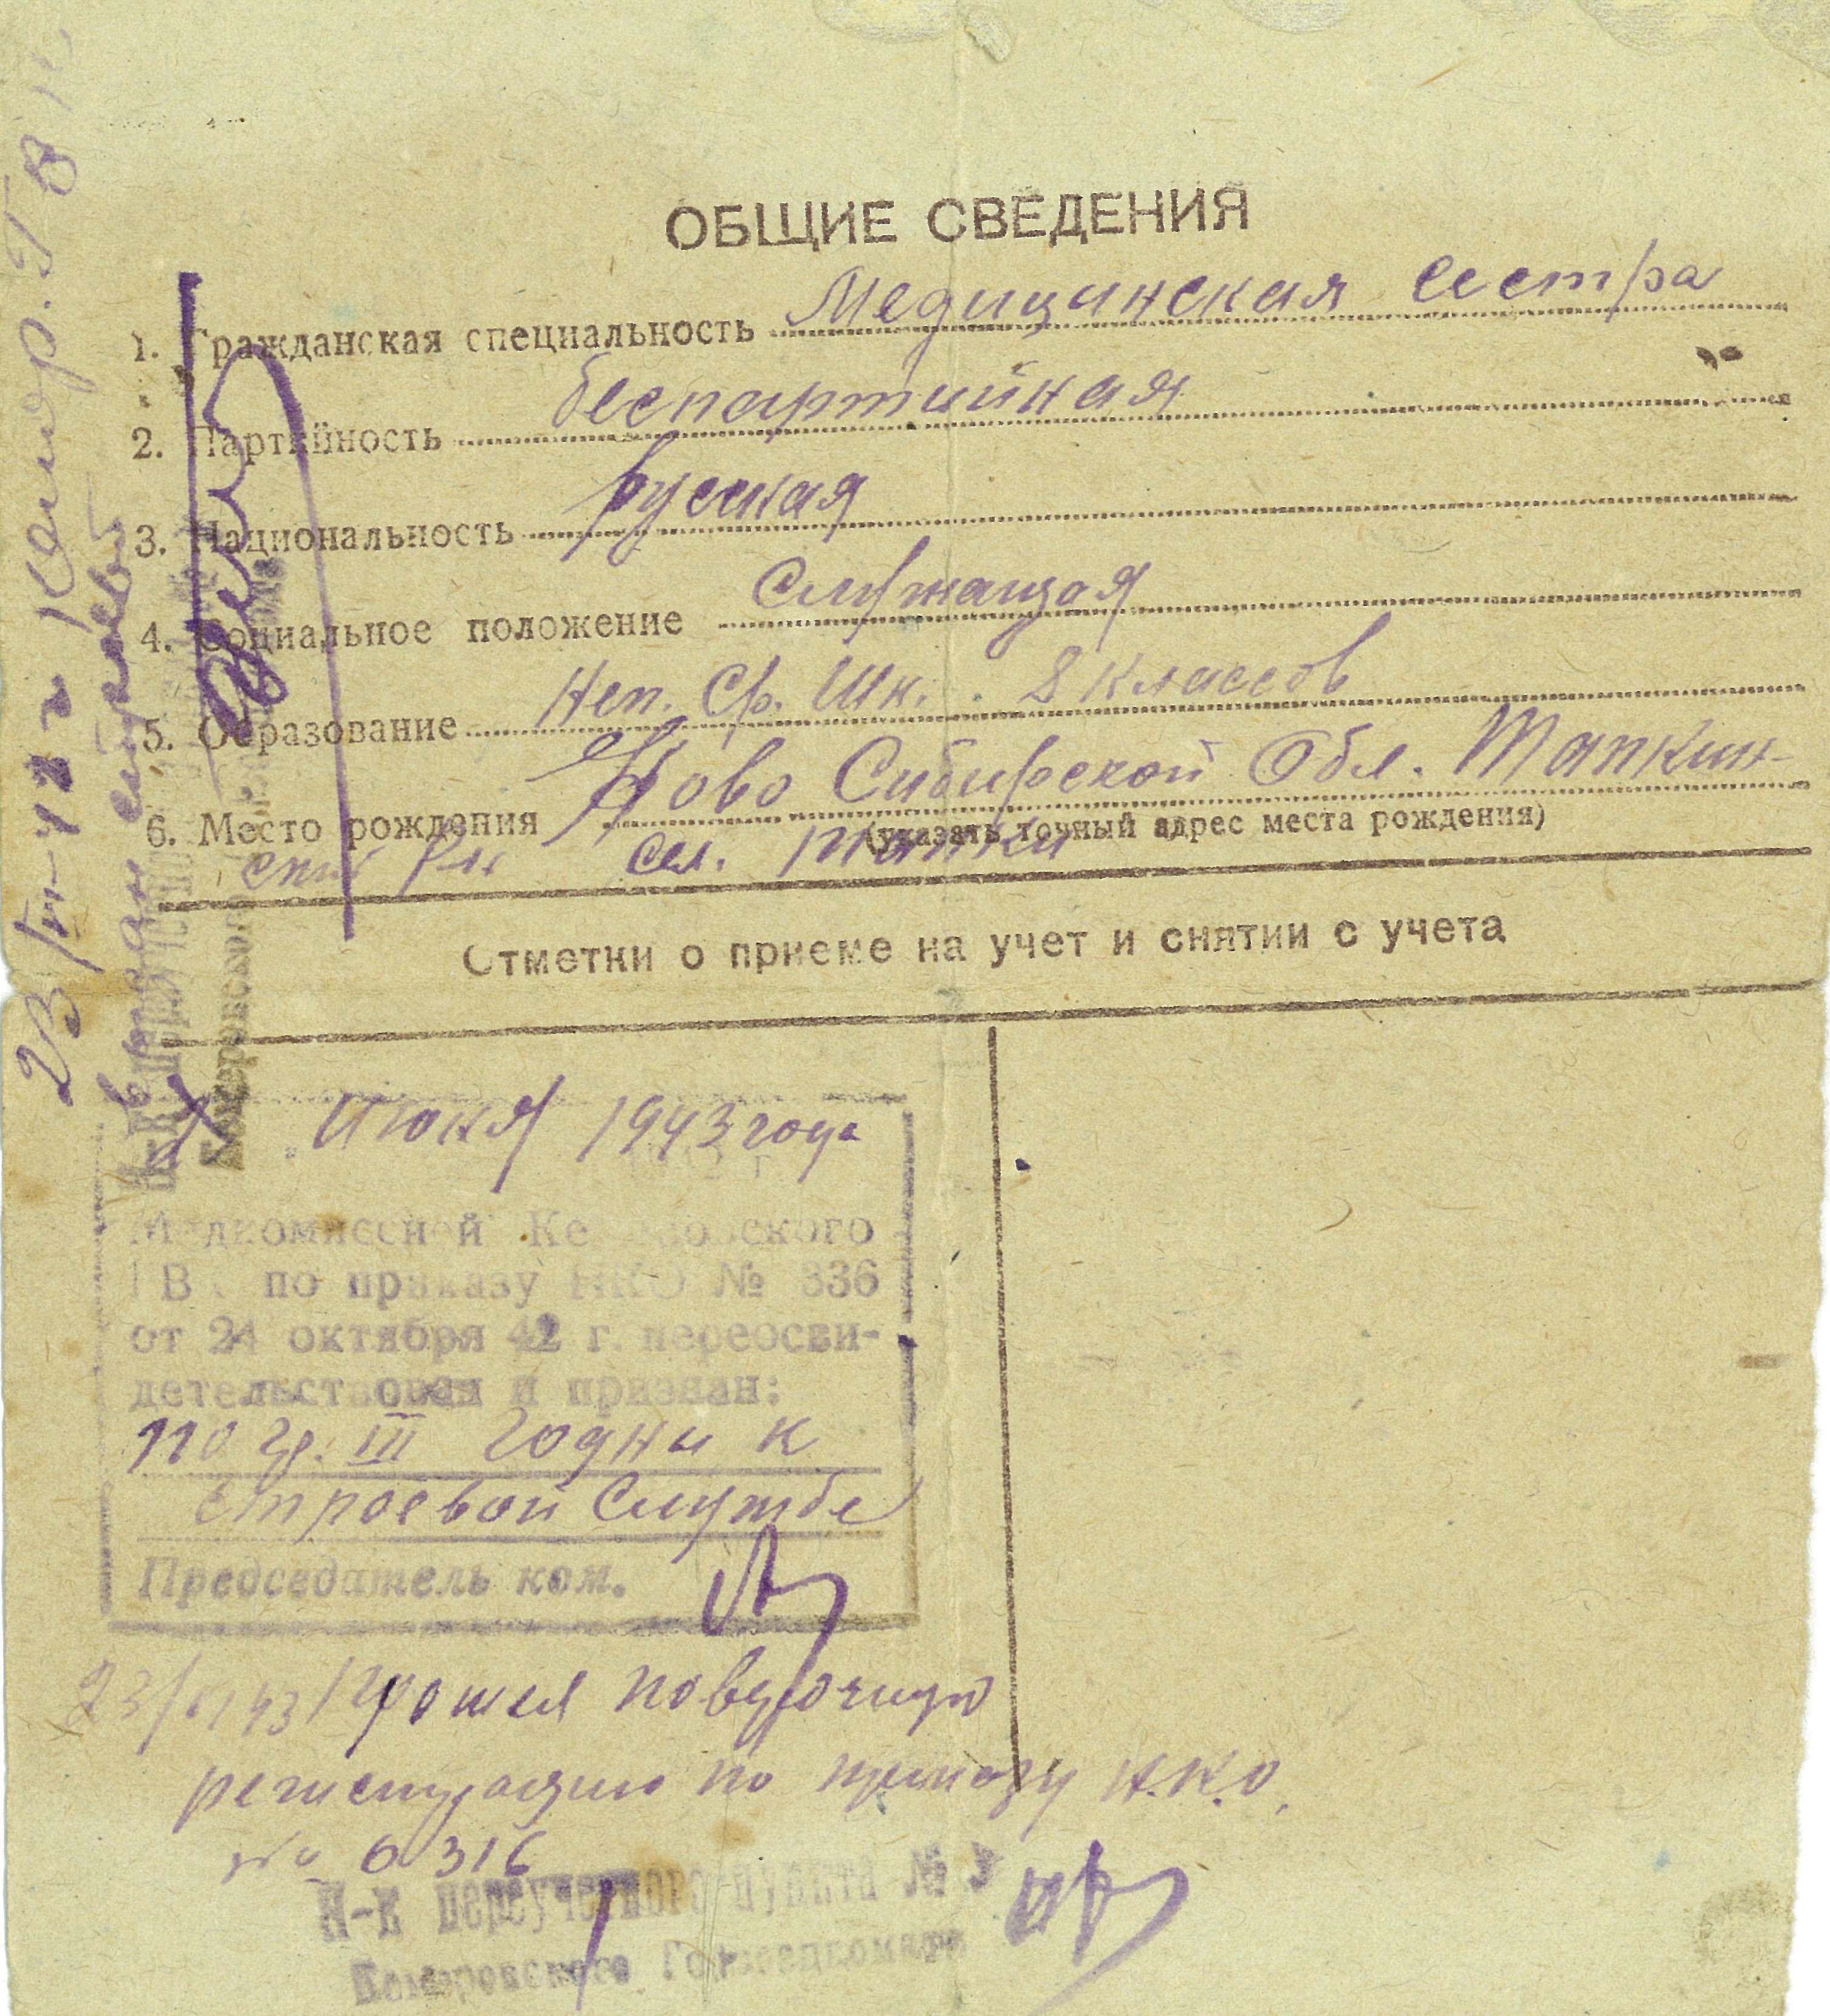 ОБЩИЕ СВЕДЕНИЯ
1. Гражданская специальность Медицинская сестра
2. Партийность беспартийная
3. Национальность русская
4. Социальное положение Служащая
5. Образование Неп. Ср. Шк. 8 классов
6. Место рождения Ново Сибирской Обл. Тапкин-
(указать точный адрес места рождения)
ский р-н сел. Тапки
Отметки о приеме на учет и снятии с учета
Июня 1943 года
Медкомиссией Кемеровского
ГВК по приказу НКО № 336
от 24 октября 42 г. переосви-
детельствован и признан:
по гр. III годна к
строевой Службе
Председатель ком.
23/ 43 Прошел повторную
регистрацию по приказу Н.К.О.
№ 0316
Н-к переучетного пункта № 3
Кемеровского Горвоенкомата